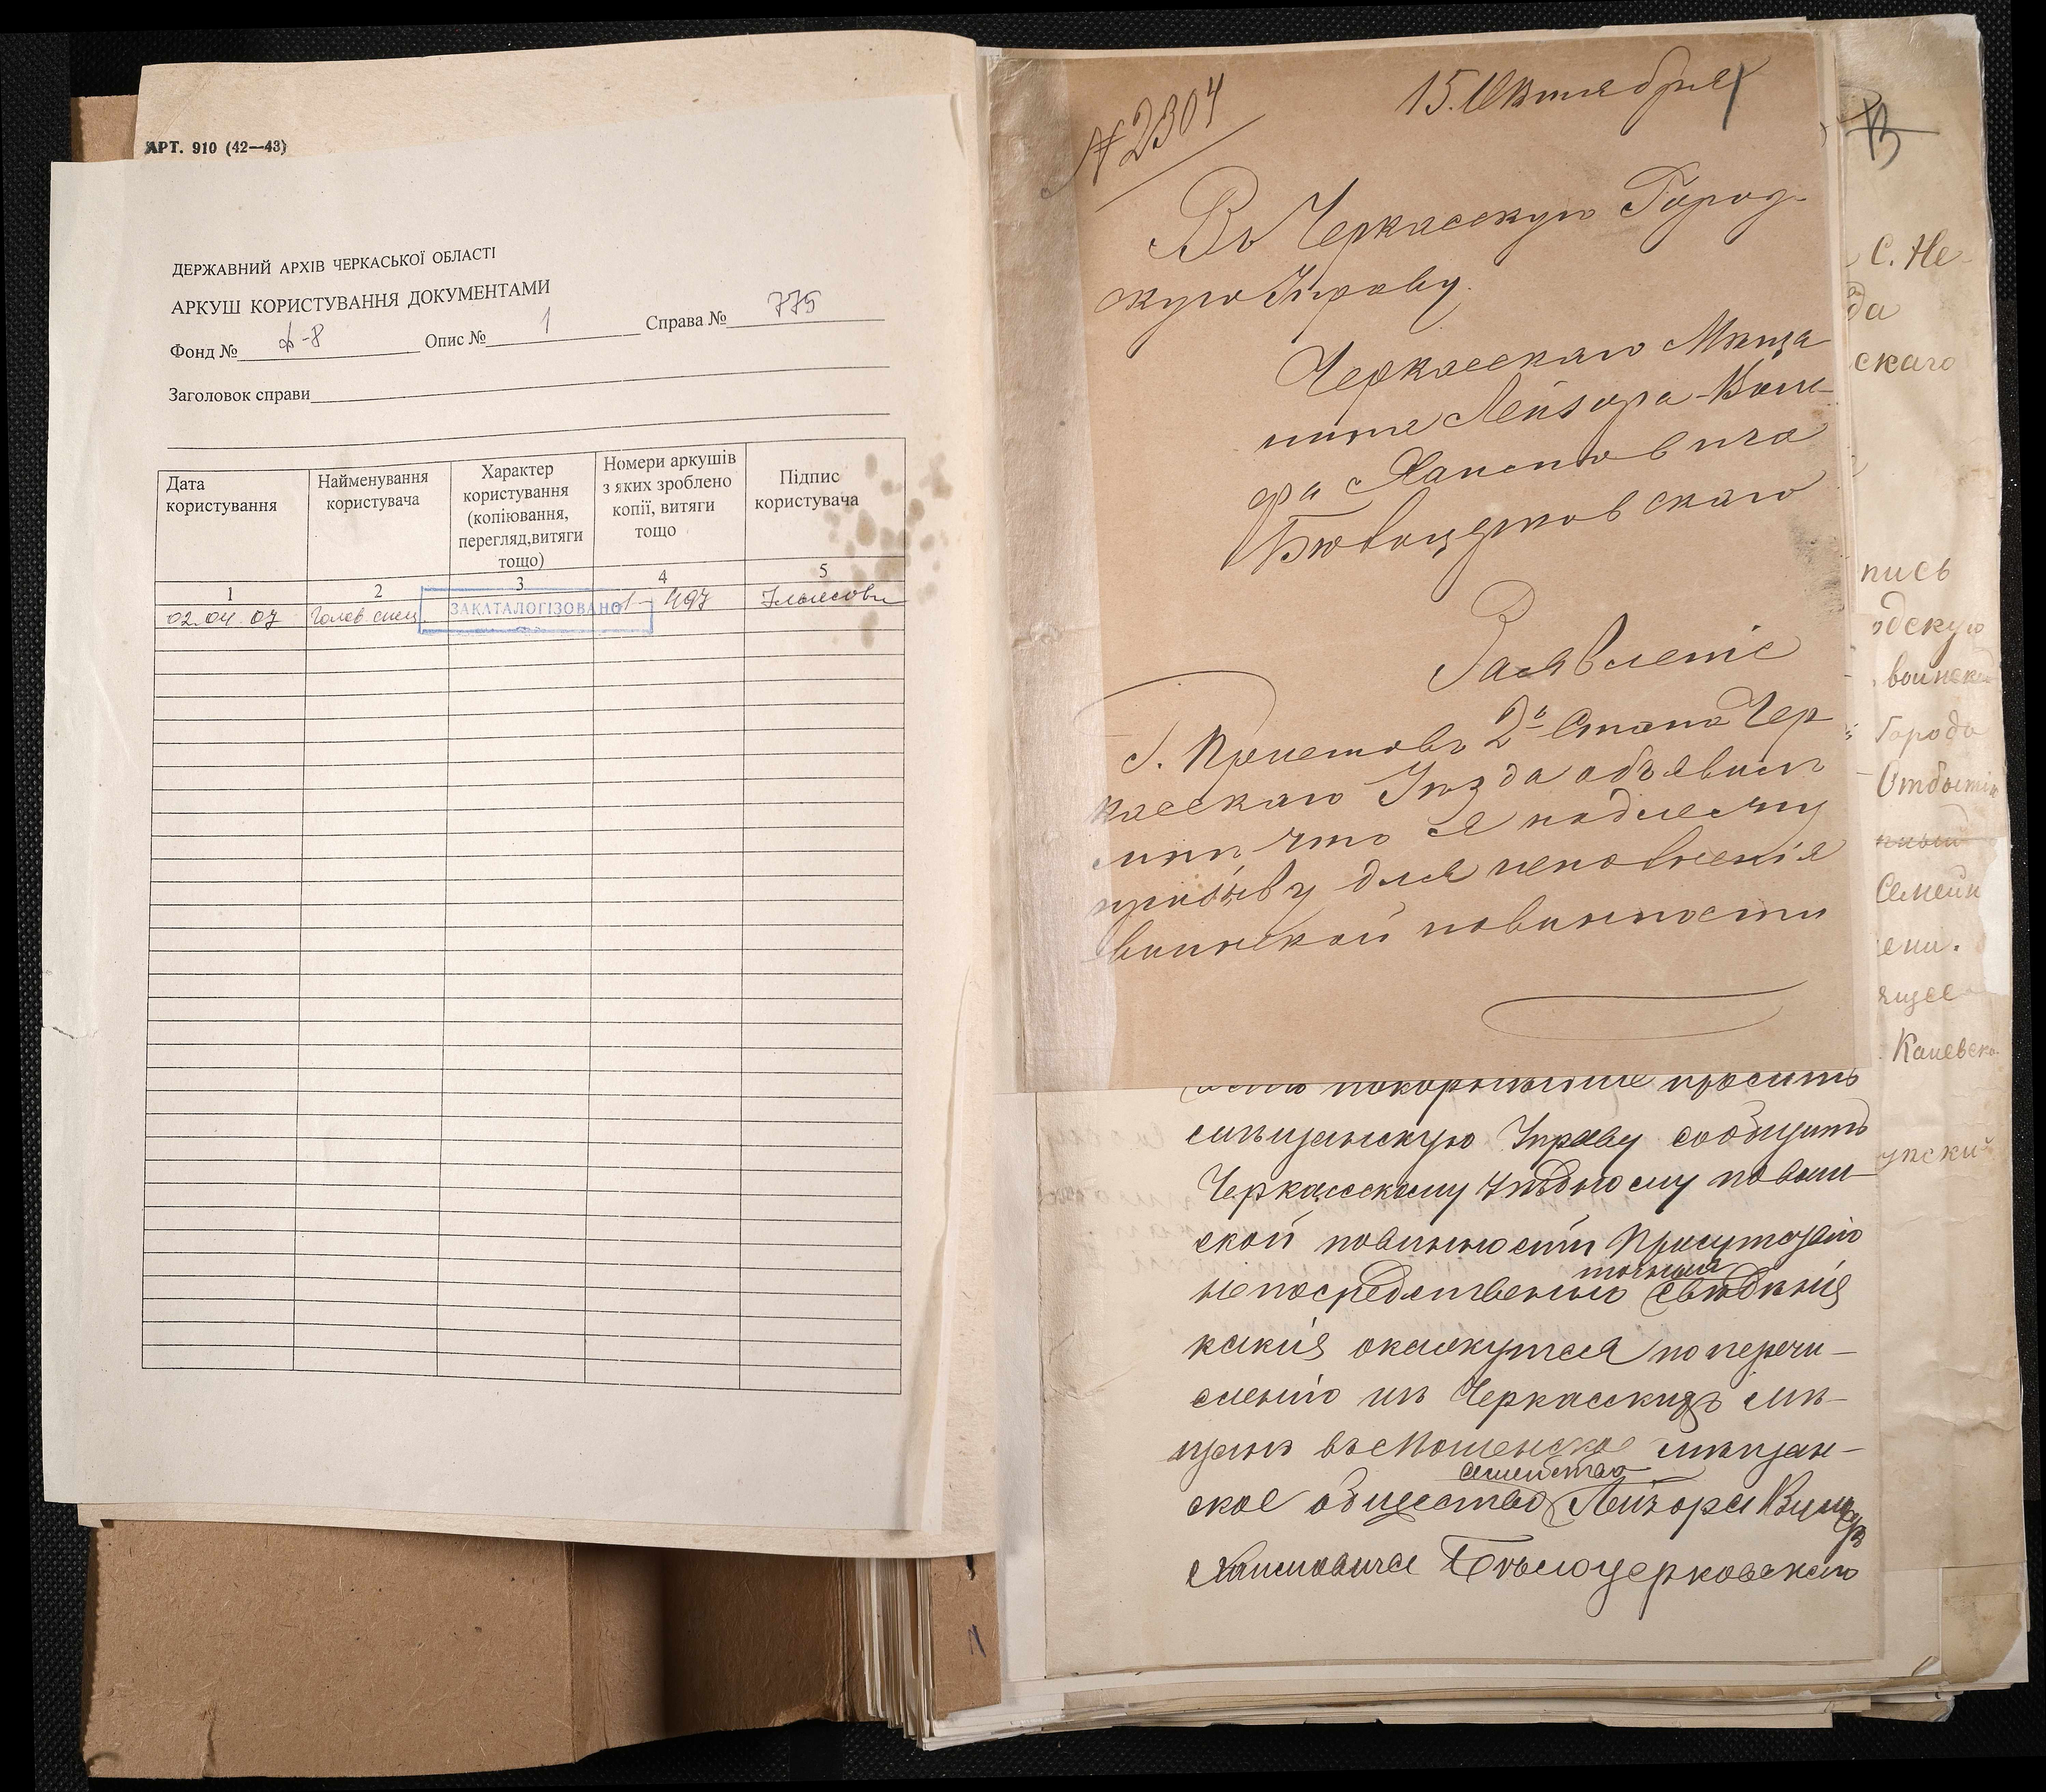 АРТ. 910 (42—43)
ДЕРЖАВНИЙ АРХІВ ЧЕРКАСЬКОЇ ОБЛАСТІ
АРКУШ КОРИСТУВАННЯ ДОКУМЕНТАМИ
Фонд № ф-8 Опис № 1 Справа № 775
Заголовок справи
Дата користування
Найменування користувача
Характер користування (копіювання, перегляд,витяги тощо)
Номери аркушів з яких зроблено копії, витяги тощо
Підпис користувача
1 2 3 4 5
02.04.07 Голов. спец. ЗАКАТАЛОГІЗОВАНО 1-497
№ 2304
15. Октября
Въ Черкасскую Город-
скую Управу.
Черкасскаго Мѣща
нина Лейзора-Вол-
фа Хаимовича
Бѣлоцерковскаго
Заявленіе
Г. Приставъ 2º Стана Чер
касскаго Уѣзда объявилъ
мнѣ что я подлежу
призыву для исполненія
воинской повинности
покорнѣйше просить
мѣщанскую Управу сообщить
Черкасскому уѣздному по воин-
ской повинности Присутствію
точныя
непосредственно свѣдѣнія
какія окажутся по перечи-
сленію изъ Черкасскихъ мѣ-
щанъ въ Мошенское мѣщан-
семейства
ское общество Лейзора
Хаимовича Бѣлоцерковскаго
С. Не
да
скаго
пись
одскую
воинской
Городо
Отбытія
Семейн
ени.
ящее
Каневско